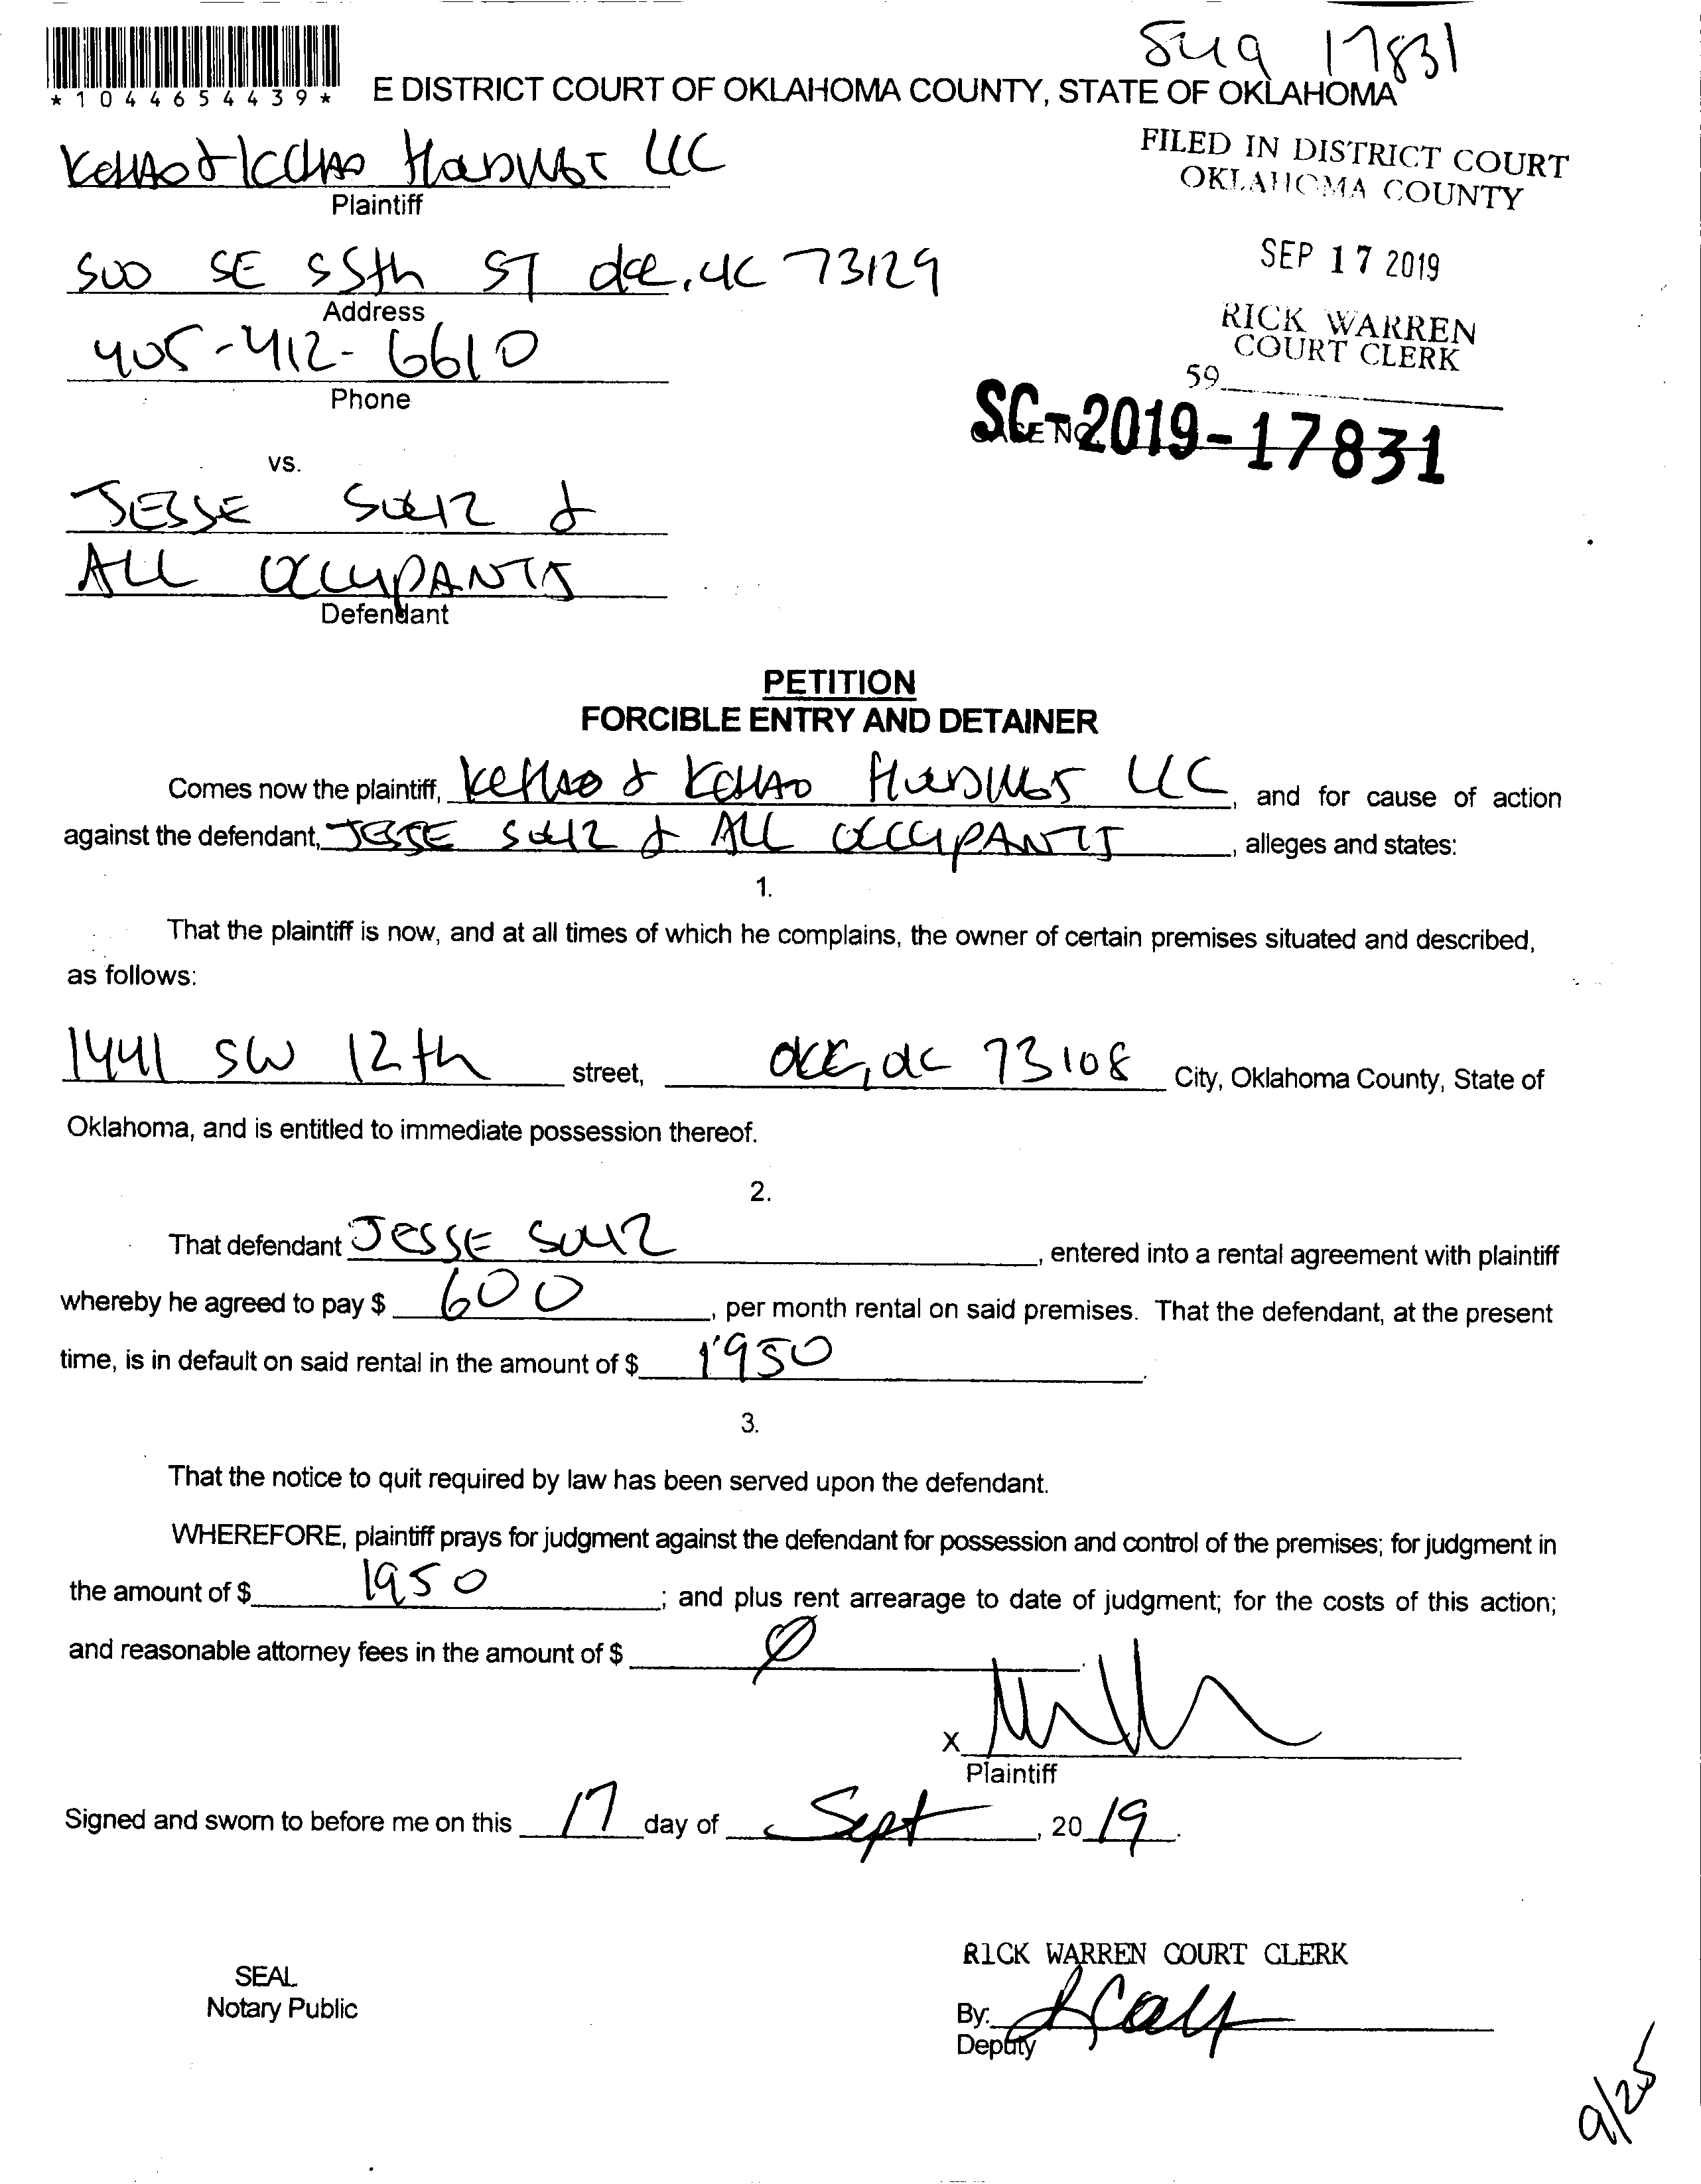 17831
*1044654439*
E DISTRICT COURT OF OKLAHOMA COUNTY, STATE OF OKLAHOMA
FILED IN DISTRICT COURT
OKLAHOMA COUNTY
LLC
Plaintiff
SEP 17 2019
SE 55th ST 73129
Address
RICK WARREN
COURT CLERK
405-412-6610
59
Phone
CASE NO.
SC-2019-17831
vs.
JESSE &
ALL OCCUPANTS
Defendant
PETITION
FORCIBLE ENTRY AND DETAINER
Comes now the plaintiff, & LLC, and for cause of action
against the defendant, JESSE & ALL OCCUPANTS, alleges and states:
1.
That the plaintiff is now, and at all times of which he complains, the owner of certain premises situated and described,
as follows:
1441 SW 12th street, 73108 City, Oklahoma County, State of
Oklahoma, and is entitled to immediate possession thereof.
2.
That defendant JESSE, entered into a rental agreement with plaintiff
whereby he agreed to pay $ 600, per month rental on said premises. That the defendant, at the present
time, is in default on said rental in the amount of $ 1950.
3.
That the notice to quit required by law has been served upon the defendant.
WHEREFORE, plaintiff prays for judgment against the defendant for possession and control of the premises; for judgment in
the amount of $ 1950; and plus rent arrearage to date of judgment; for the costs of this action;
and reasonable attorney fees in the amount of $ Ø.
X
Plaintiff
Signed and sworn to before me on this 17 day of Sept, 2019.
RICK WARREN COURT CLERK
SEAL
Notary Public
By:
Deputy
9/25